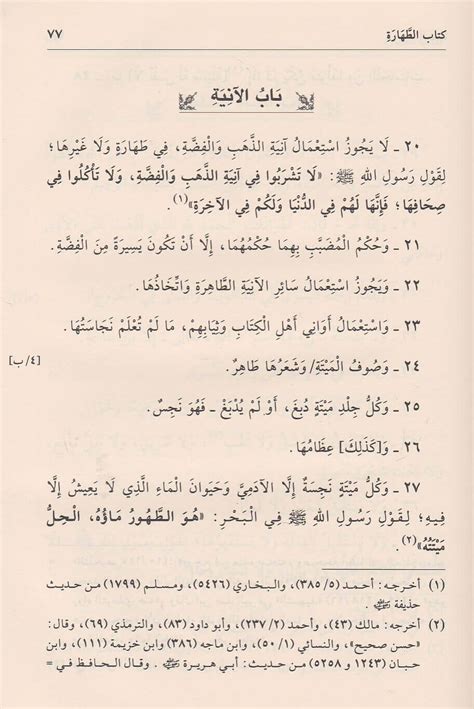 كتاب الطَّهَارَةِ ٧٧
بَابُ الآنِيَةِ
٢٠ ـ لَا يَجُوزُ اسْتِعْمَالُ آنِيَةِ الذَّهَبِ وَالْفِضَّةِ، فِي طَهَارَةٍ وَلَا غَيْرِهَا؛
لِقَوْلِ رَسُولِ اللهِ ﷺ: «لَا تَشْرَبُوا فِي آنِيَةِ الذَّهَبِ وَالْفِضَّةِ، وَلَا تَأْكُلُوا فِي
صِحَافِهَا؛ فَإِنَّهَا لَهُمْ فِي الدُّنْيَا وَلَكُمْ فِي الآخِرَةِ»(١).
٢١ ـ وَحُكْمُ الْمُضَبَّبِ بِهِمَا حُكْمُهُمَا، إِلَّا أَنْ تَكُونَ يَسِيرَةً مِنَ الْفِضَّةِ.
٢٢ ـ وَيَجُوزُ اسْتِعْمَالُ سَائِرِ الآنِيَةِ الطَّاهِرَةِ وَاتِّخَاذُهَا.
٢٣ ـ وَاسْتِعْمَالُ أَوَانِي أَهْلِ الْكِتَابِ وَثِيَابِهِمْ، مَا لَمْ تُعْلَمْ نَجَاسَتُهَا.
٢٤ ـ وَصُوفُ الْمَيْتَةِ/ وَشَعَرُهَا طَاهِرٌ. [٤/ب]
٢٥ ـ وَكُلُّ جِلْدِ مَيْتَةٍ دُبِغَ، أَوْ لَمْ يُدْبَغْ ـ فَهُوَ نَجِسٌ.
٢٦ ـ وَ[كَذَلِكَ] عِظَامُهَا.
٢٧ ـ وَكُلُّ مَيْتَةٍ نَجِسَةٌ إِلَّا الآدَمِيَّ وَحَيَوَانَ الْمَاءِ الَّذِي لَا يَعِيشُ إِلَّا
فِيهِ؛ لِقَوْلِ رَسُولِ اللهِ ﷺ فِي الْبَحْرِ: «هُوَ الطَّهُورُ مَاؤُهُ، الْحِلُّ
مَيْتَتُهُ»(٢).
(١) أخرجه: أحمد (٥/ ٣٨٥)، والبخاري (٥٤٢٦)، ومسلم (١٧٩٩) من حديث
حذيفة
(٢) أخرجه: مالك (٤٣)، وأحمد (٢/ ٢٣٧)، وأبو داود (٨٣)، والترمذي (٦٩)، وقال:
«حسن صحيح»، والنسائي (١/ ٥٠)، وابن ماجه (٣٨٦) وابن خزيمة (١١١)، وابن
حبان (١٢٤٣ و ٥٢٥٨) من حديث: أبي هريرة . وقال الحافظ في =